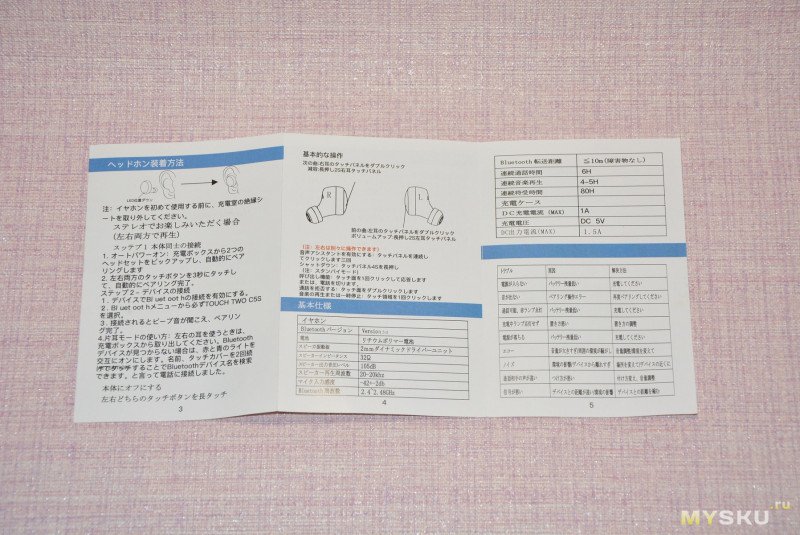 ヘッドホン装着方法
LED位置ダウン
注：イヤホンを初めて使用する前に、充電室の絶縁シ
ートを取り外してください。
ステレオでお楽しみいただく場合
(左右両方で再生)
ステップ1 本体同士の接続
1. オートパワーオン：充電ボックスから2つの
ヘッドセットをピックアップし、自動的にペア
リングします
2. 左右両方のタッチボタンを3秒にタッチし
て、自動的にペアリング完了。
ステップ2－デバイスの接続
1. デバイスでBl uet oot hの接続を有効にする。
2. Bl uet oot hメニューから必ずTOUCH TWO CSS
を選択。
3. 接続されるとビープ音が聞こえ、ペアリン
グ完了。
4.片耳モードの使い方：左右の耳を使うときは、
充電ボックスから取り出してください、Bluetooth
デバイスが見つからない場合は、赤と青のライトを
交互にオンにします。名前、タッチカバーを2回続
けてタッチすることでBluetoothデバイス名を検索
できます。と言って電話に接続しました。
本体にオフにする
左右どちらのタッチボタンを長タッチ
3
基本的な操作
次の曲:右耳のタッチパネルをダブルクリック
減取:長押し2S右耳タッチパネル
R
L
前の曲:左耳のタッチパネルをダブルクリック
ボリュームアップ:長押し2S左耳タッチパネル
(注：左右は別々に操作できます)
音声アシスタントを有効にする：タッチパネルを連続し
てクリックします三回
シャットダウン：タッチパネル4Sを長押し
(注：スタンバイモード)
呼び出し機能：タッチ面を1回クリックして応答します
または、電話を切ります。
通話を拒否する：タッチ面をダブルクリックします
音楽の再生または一時停止：タッチ領域を1回クリックします
基本仕様
イヤホン
Bluetoothバージョン Version 5.0
電池 リチウムポリマー電池
スピーカ振動板 2mmダイナミックドライバーユニット
スピーカーインピーダンス 32Ω
スピーカー出力音圧レベル 105dB
スピーカー再生周波数 20-20khz
マイク入力感度 -42+-2db
Bluetooth周波数 2.4~2.48GHz
4
Bluetooth転送距離 ≦10m(障害物なし)
連続通話時間 6H
連続音楽再生 4-5H
連続待受時間 80H
充電ケース
DC充電電流(MAX) 1A
充電電圧 DC 5V
DC出力電流(MAX) 1.5A
トラブル 原因 解決方法
電源が入らない バッテリー残量低い 充電してください
音が出ない ペアリング操作エラー 再度ペアリングしてください
通話可能、赤ランプ点灯 バッテリー残量低い 充電してください
充電中ランプ点灯せず 置き方が悪い 置き方の調整
電源が落ちる バッテリー残量低い 充電してください
エコー 音量が大きすぎ/周囲の環境が騒がしい 音量調整/環境を変えて
ノイズ 環境の影響/デバイスから離れすぎ 場所を変えて/デバイスの近くに
通話相手の声が低い つけ方が悪い 付け方変え、音量調整
信号が悪い デバイスとの距離が遠い/環境の影響 デバイスとの距離を縮む
5
MYSKU.ru